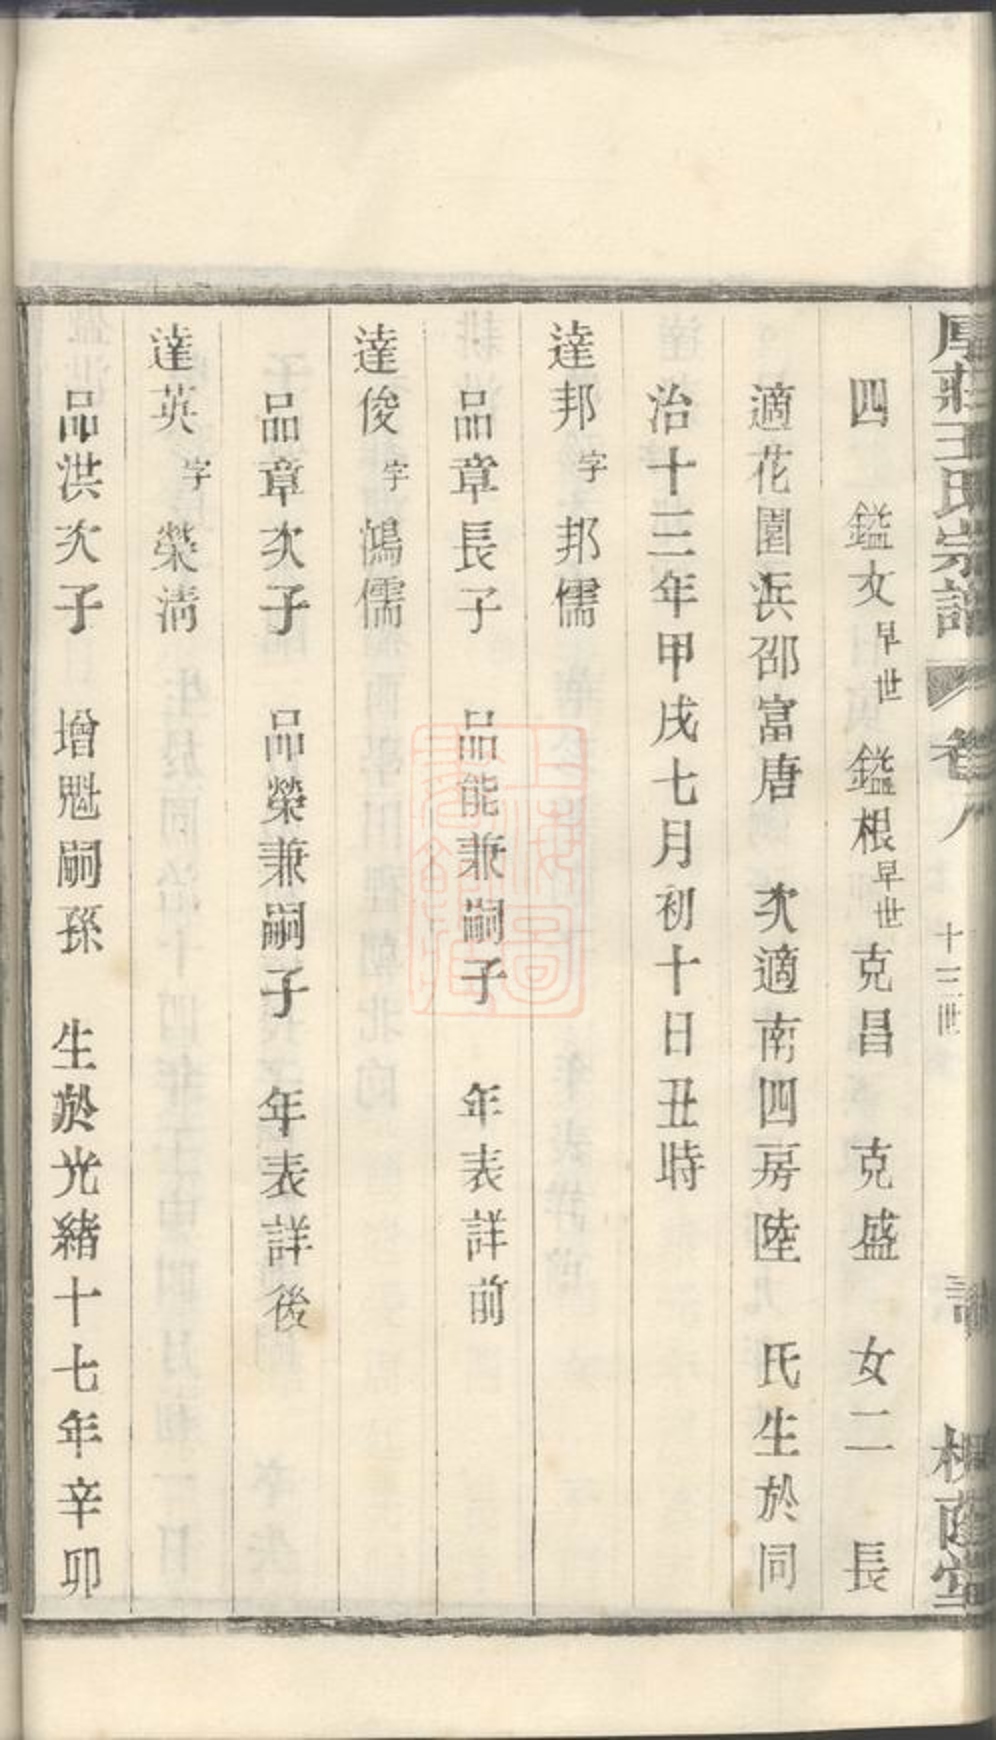 厚莊王氏宗譜 卷八 十三世 槐蔭堂
四 鎰文早世 鎰根早世 克昌 克盛 女二 長
適花園浜邵富唐 次適南四房陸 氏生於同
治十三年甲戌七月初十日丑時
達邦字邦儒
品章長子 品能兼嗣子 年表詳前
達俊字鴻儒
品章次子 品榮兼嗣子 年表詳後
達英字榮清
品洪次子 增魁嗣孫 生於光緒十七年辛卯